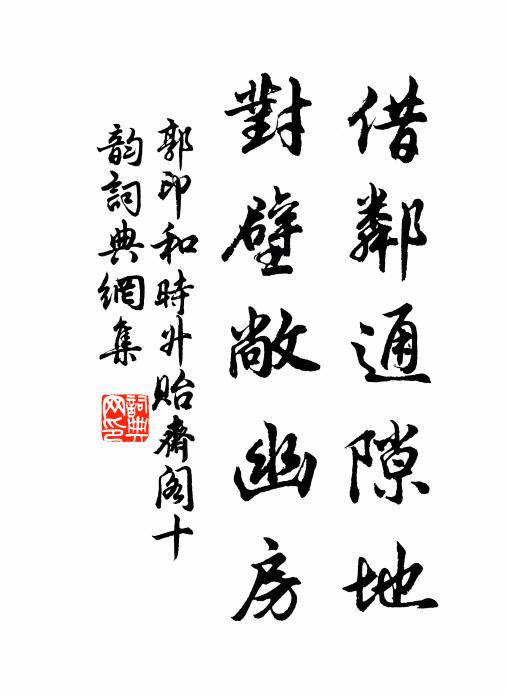 借鄰通隙地
對壁敞幽房
郭印和時升貽齋閣十
韵詞典網集
詞典
网印